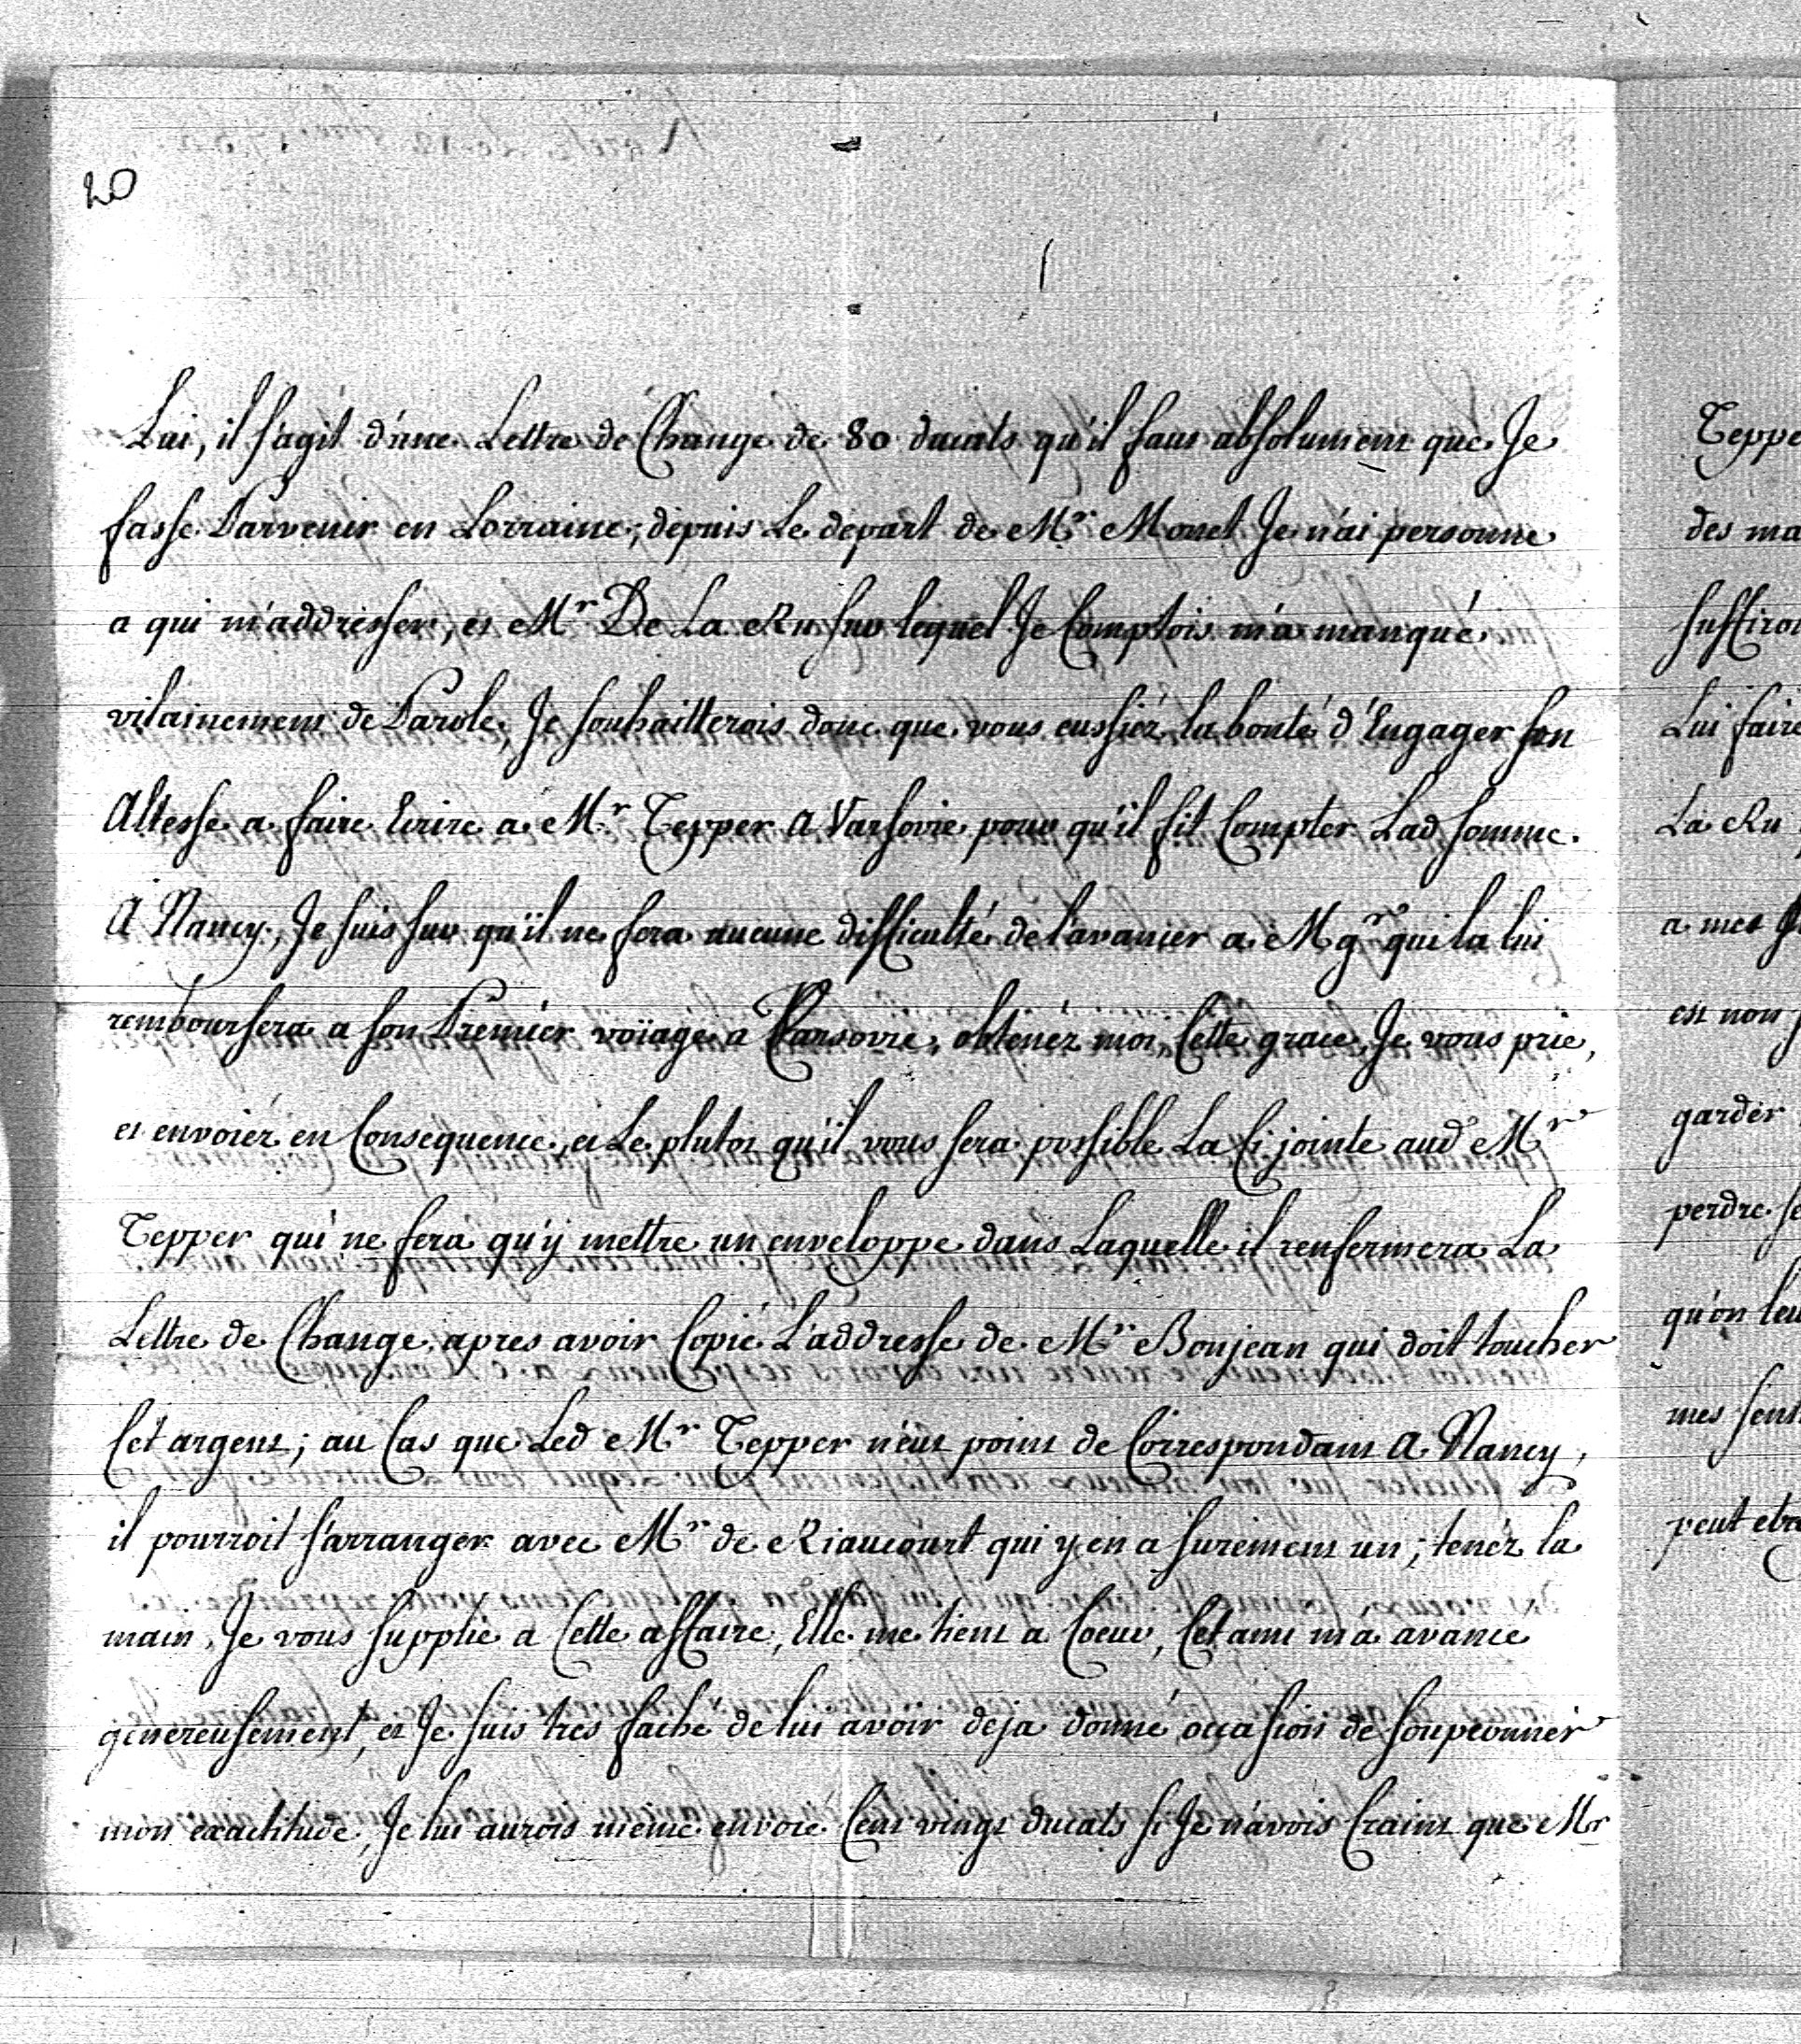 20
Lui, il s'agit d'une Lettre de Change de 80 ducats qu'il faut absolument que Je
fasse Parvenir en Lorraine; depuis Le depart de Mr Monet Je n'ai personne
a qui m'addresser, et Mr De La Ru sur lequel Je Comptois m'a manqué
vilainement de Parole; Je souhaitterois donc que vous eussiéz la bonté d'Engager son
Altesse a faire Ecrire a Mr Tepper A Varsovie pour qu'il fit Compter Lad somme
A Nancy, Je suis sur qu'il ne fera aucune difficulté de l'avancer a Mgr qui la lui
remboursera a son Premier voïage a Varsovie, obtenéz moi Cette grace, Je vous prie,
et envoiéz en Consequence, et Le plutot qu'il vous sera possible La Ci jointe aud Mr
Tepper qui ne fera qu'y mettre un enveloppe dans Laquelle il renfermera La
Lettre de Change, apres avoir Copié L'addresse de Mr Bonjean qui doit toucher
Cet argent; au Cas que Led Mr Tepper n'eut point de Correspondant A Nancy,
il pourroit s'arranger avec Mr de Riaucourt qui y en a surement un; tenéz la
main, Je vous supplie a Cette affaire, Elle me tient a Coeur, Cet ami m'a avancé
genereusement, et Je suis tres faché de lui avoir deja donné occasion de soupconner
mon exactitude, Je lui aurois meme envoié Cent vingt ducats si Je n'avois Craint que Mr
Teppe
des ma
suffiro
Lui faire
La Ru
a mes
est non
garder
perdre
qu'on leu
mes sent
peut etre